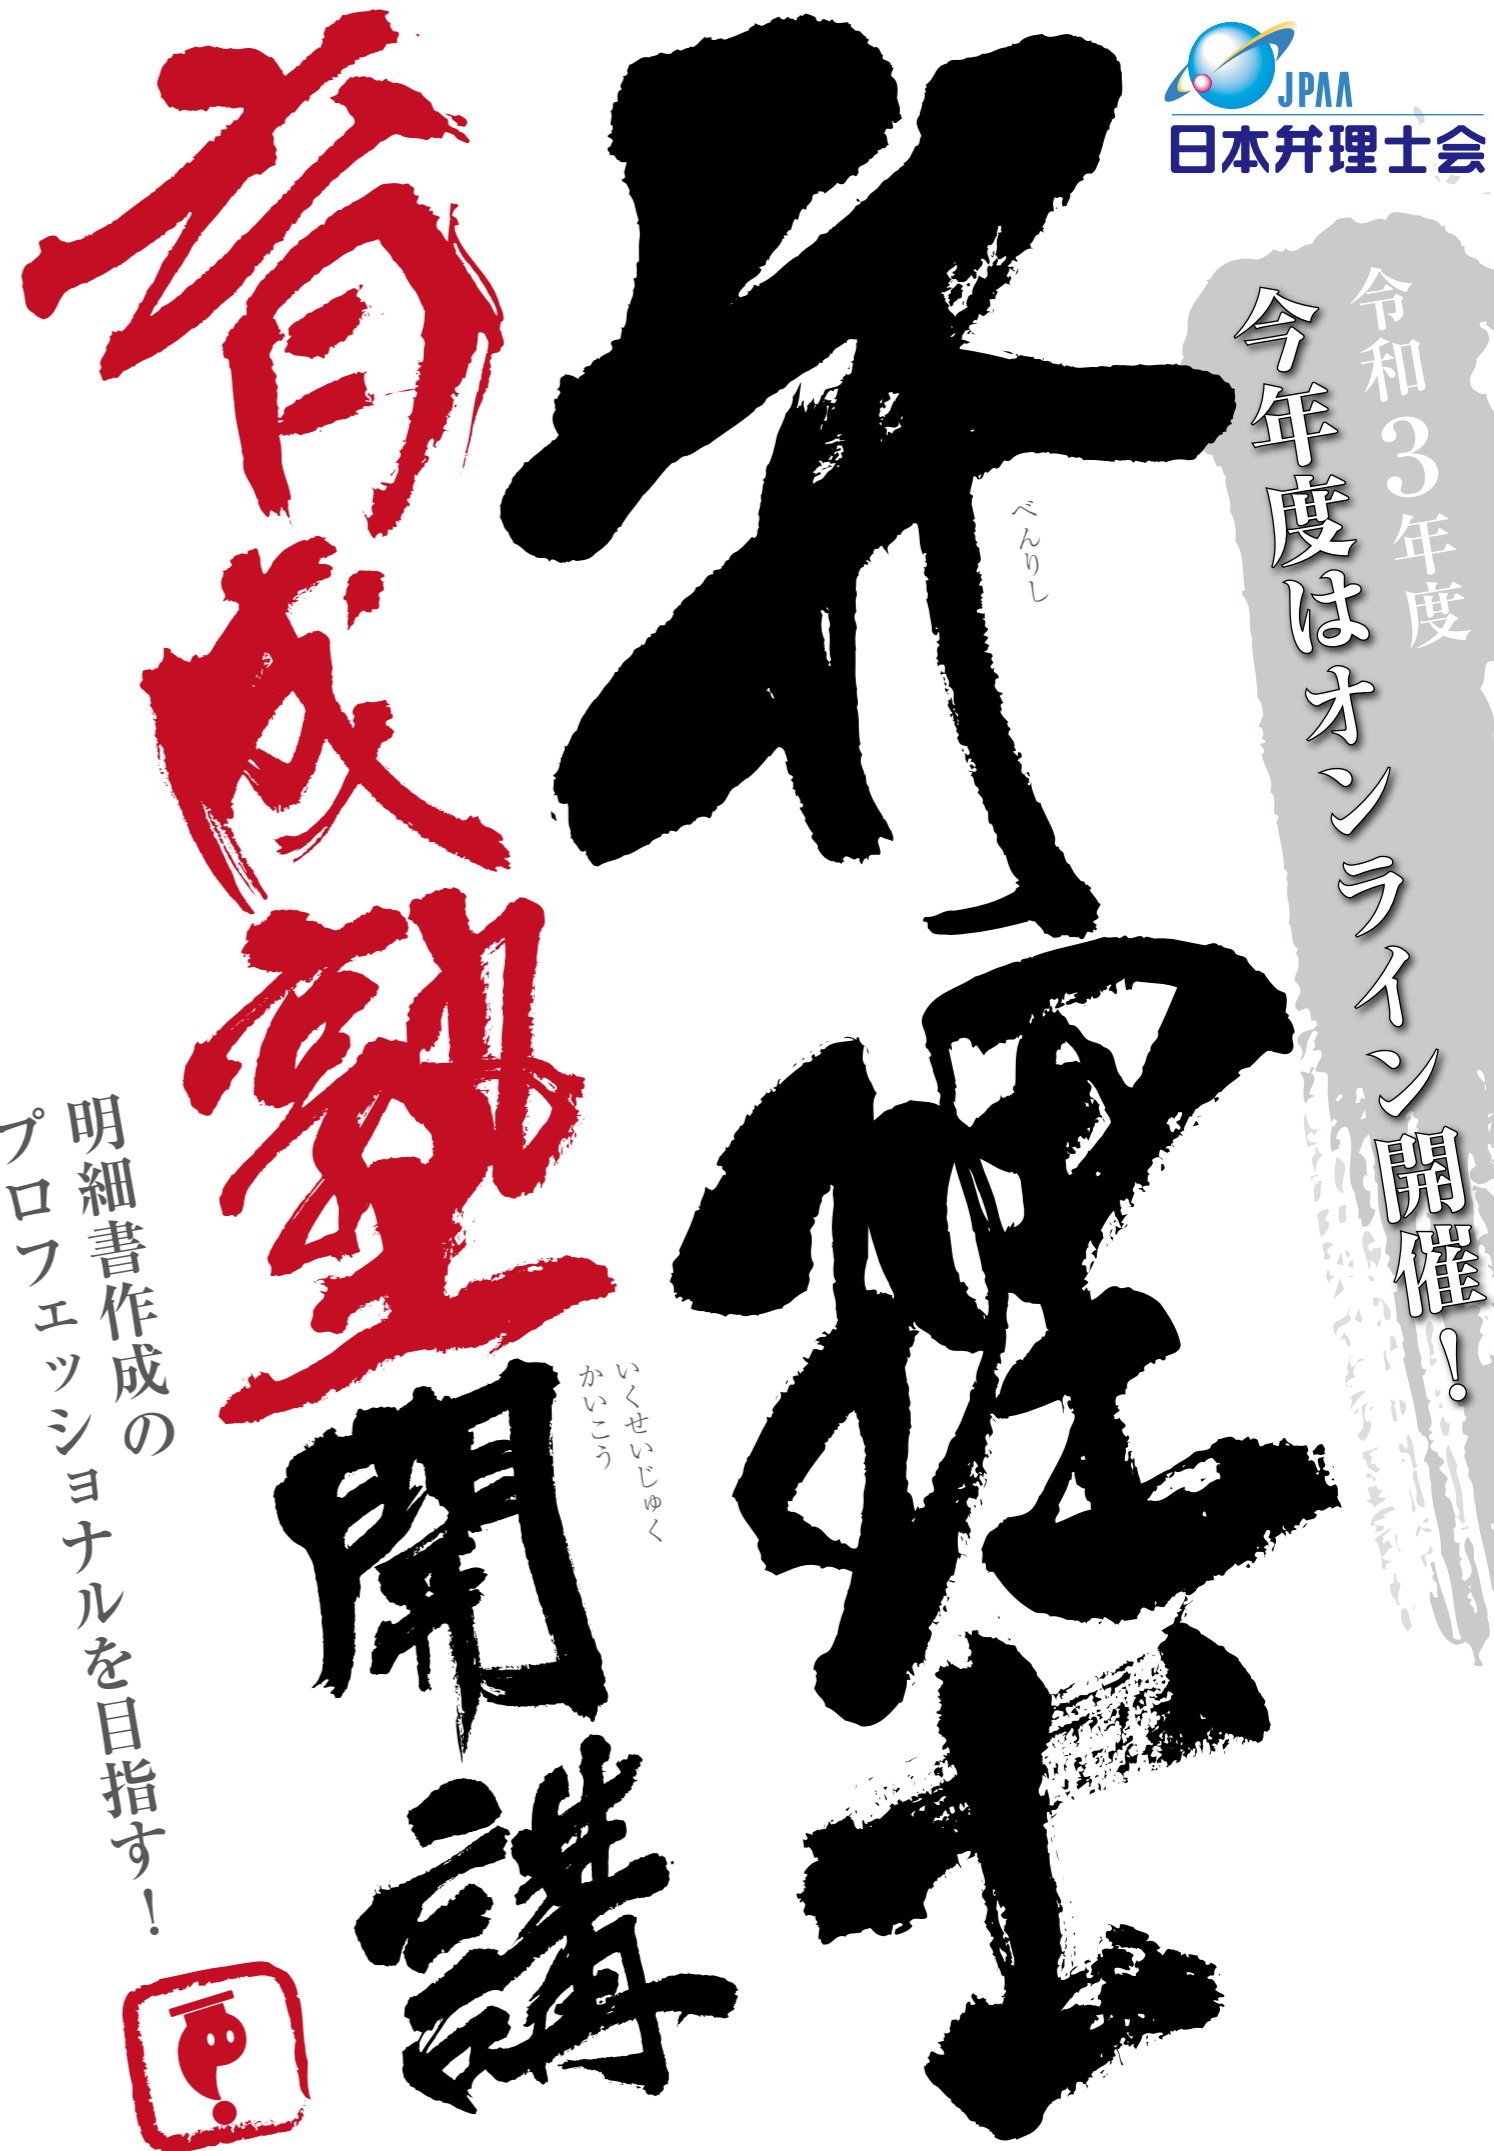 JPAA
日本弁理士会
令和3年度
今年度はオンライン開催！
弁理士
べんりし
育成塾
開講
いくせいじゅく
かいこう
明細書作成の
プロフェッショナルを目指す！